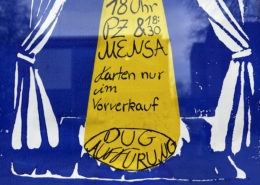 18 Uhr
PZ & 18:30
MENSA
Karten nur
im
Vorverkauf
DUG
AUFFÜRUNG